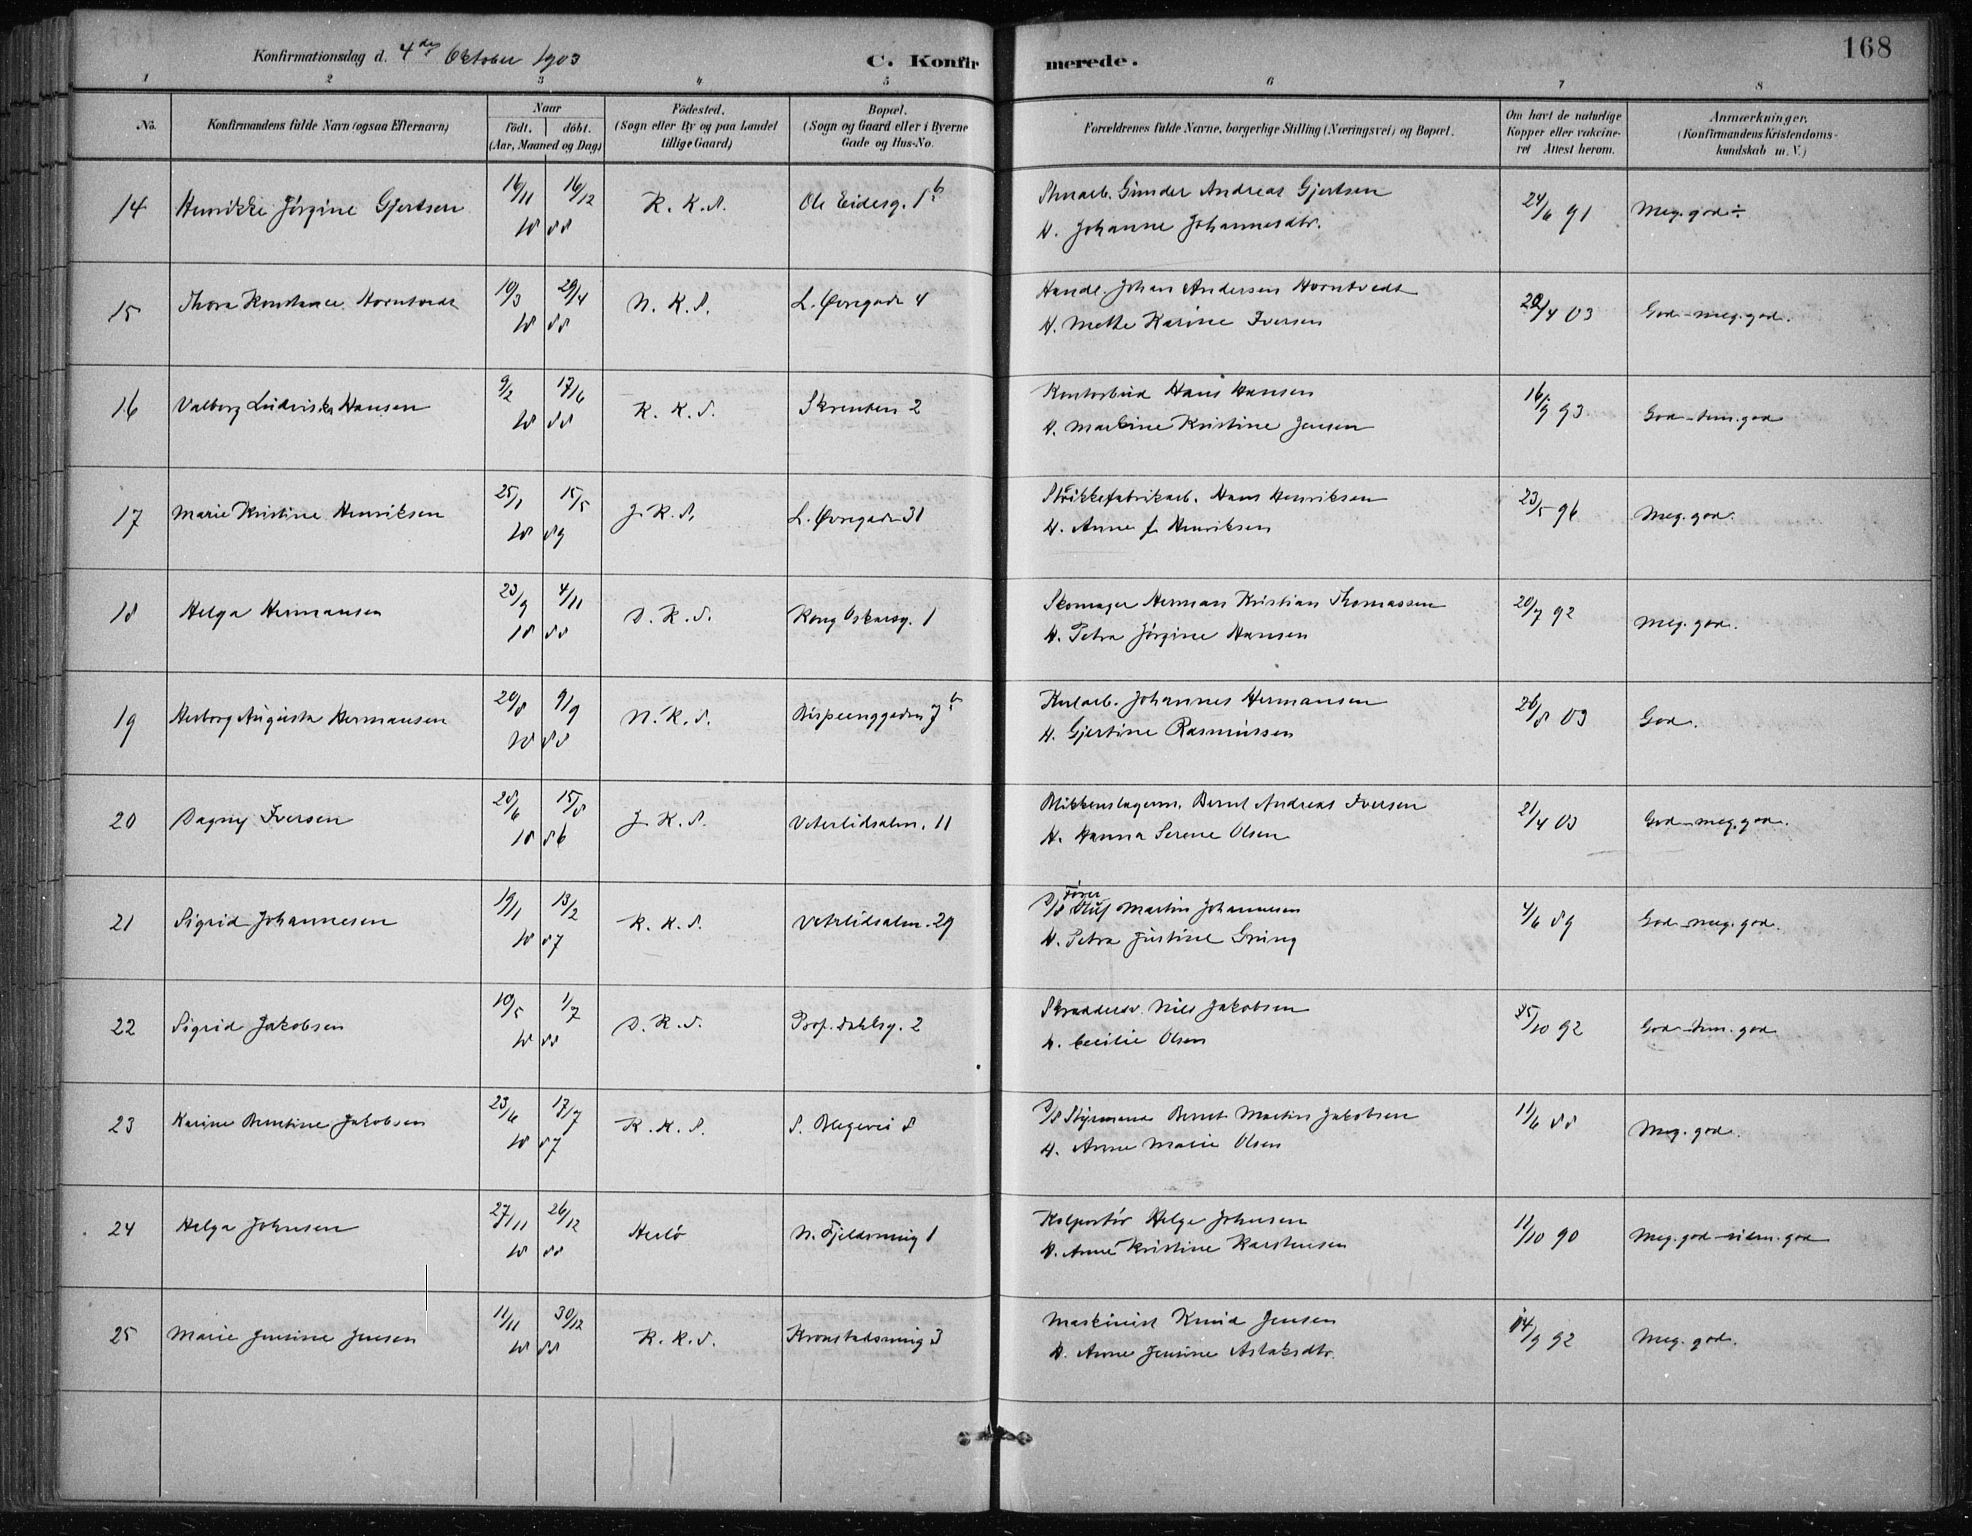 Konfirmationsdag d. 4de Oktober 1903
C. Konfirmerede.
168
1 2 3 4 5 6 7 8
No.
Konfirmandens fulde Navn (ogsaa Efternavn)
Naar
født. døbt.
(Aar, Maaned og Dag)
Fødested.
(Sogn eller By og paa Landet
tillige Gaard)
Bopæl.
(Sogn og Gaard eller i Byerne
Gade og Hus-No.
Forældrenes fulde Navne, borgerlige Stilling (Næringsvei) og Bopæl.
Om havt de naturlige
Kopper eller vakcine-
ret Attest herom.
Anmærkninger.
(Konfirmandens Kristendoms-
kundskab m. V.)
14 Henrikke Jørgine Gjertsen 16/11 16/12 18 88 K. K. S. Ole Eidesg. 1b
Gunder Andreas Gjertsen
H. Johanne Johannesdtr.
24/6 91 Meg. god ÷
15 Thora Konstance Horntvedt 10/3 29/4 18 88 N. K. S. L. Øvregade 4
Handl. Johan Andersen Horntvedt
H. Mette Karine Iversen
22/4 03 God - meg. god.
16 Valborg Ludviska Hansen 9/2 17/6 18 88 K. K. S. Skrenten 2
Kontorbud Hans Hansen
H. Marline Kristine Jensen
16/9 93 God - tem. god
17 Marie Kristine Henriksen 25/1 15/5 18 89 J. K. S. L. Øvregade 31
Strikkefabrikarb. Hans Henriksen
H. Anne f. Henriksen
23/5 96 Meg. god.
18 Helga Hermansen 23/9 4/11 18 88 D. K. S. Kong Oskarsg. 1
Skomager Herman Kristian Thomassen
H. Petra Jørgine Hansen
20/7 92 Meg. god.
19 Herborg Augusta Hermansen 20/8 9/9 18 88 N. K. S. Bispeenggaden 7b
Kularb. Johannes Hermansen
H. Gjertine Rasmussen
26/8 03 God.
20 Dagny Iversen 28/6 15/8 18 86 J. K. S. Veterlidsalm. 11
Blikkenslagerm. Bernt Andreas Iversen
H. Hanna Serene Olsen
21/4 03 God - meg. god.
21 Sigrid Johannesen 19/11 13/2 18 87 K. K. S. Veterlidsalm. 29
D/S Fører Oluf Martin Johannesen
H. Petra Justine Grung
4/6 89 God - meg. god.
22 Sigrid Jakobsen 10/5 1/7 18 88 D. K. S. Prof. Dahlsg. 2
Skreddersv. Nils Jakobsen
H. Cecilie Olsen
/10 92 God - tem. god
23 Karine Berntine Jakobsen 23/6 17/7 18 87 K. K. S. S. Blegevei 8
D/S Styrmand Bernt Martin Jakobsen
H. Anne Marie Olsen
11/6 88 Meg. god.
24 Helga Johnsen 27/11 26/12 18 88 Herlø N. Fjeldsmug 1
Kolportør Helge Johnsen
H. Anne Kristine Karstensen
11/10 90 Meg. god - udm. god
25 Marie Jensine Jensen 11/11 30/12 18 88 K. K. S. Kronstadsmug 3
Maskinist Knud Jensen
H. Anne Jensine Aslaksdtr.
14/9 92 Meg. god.